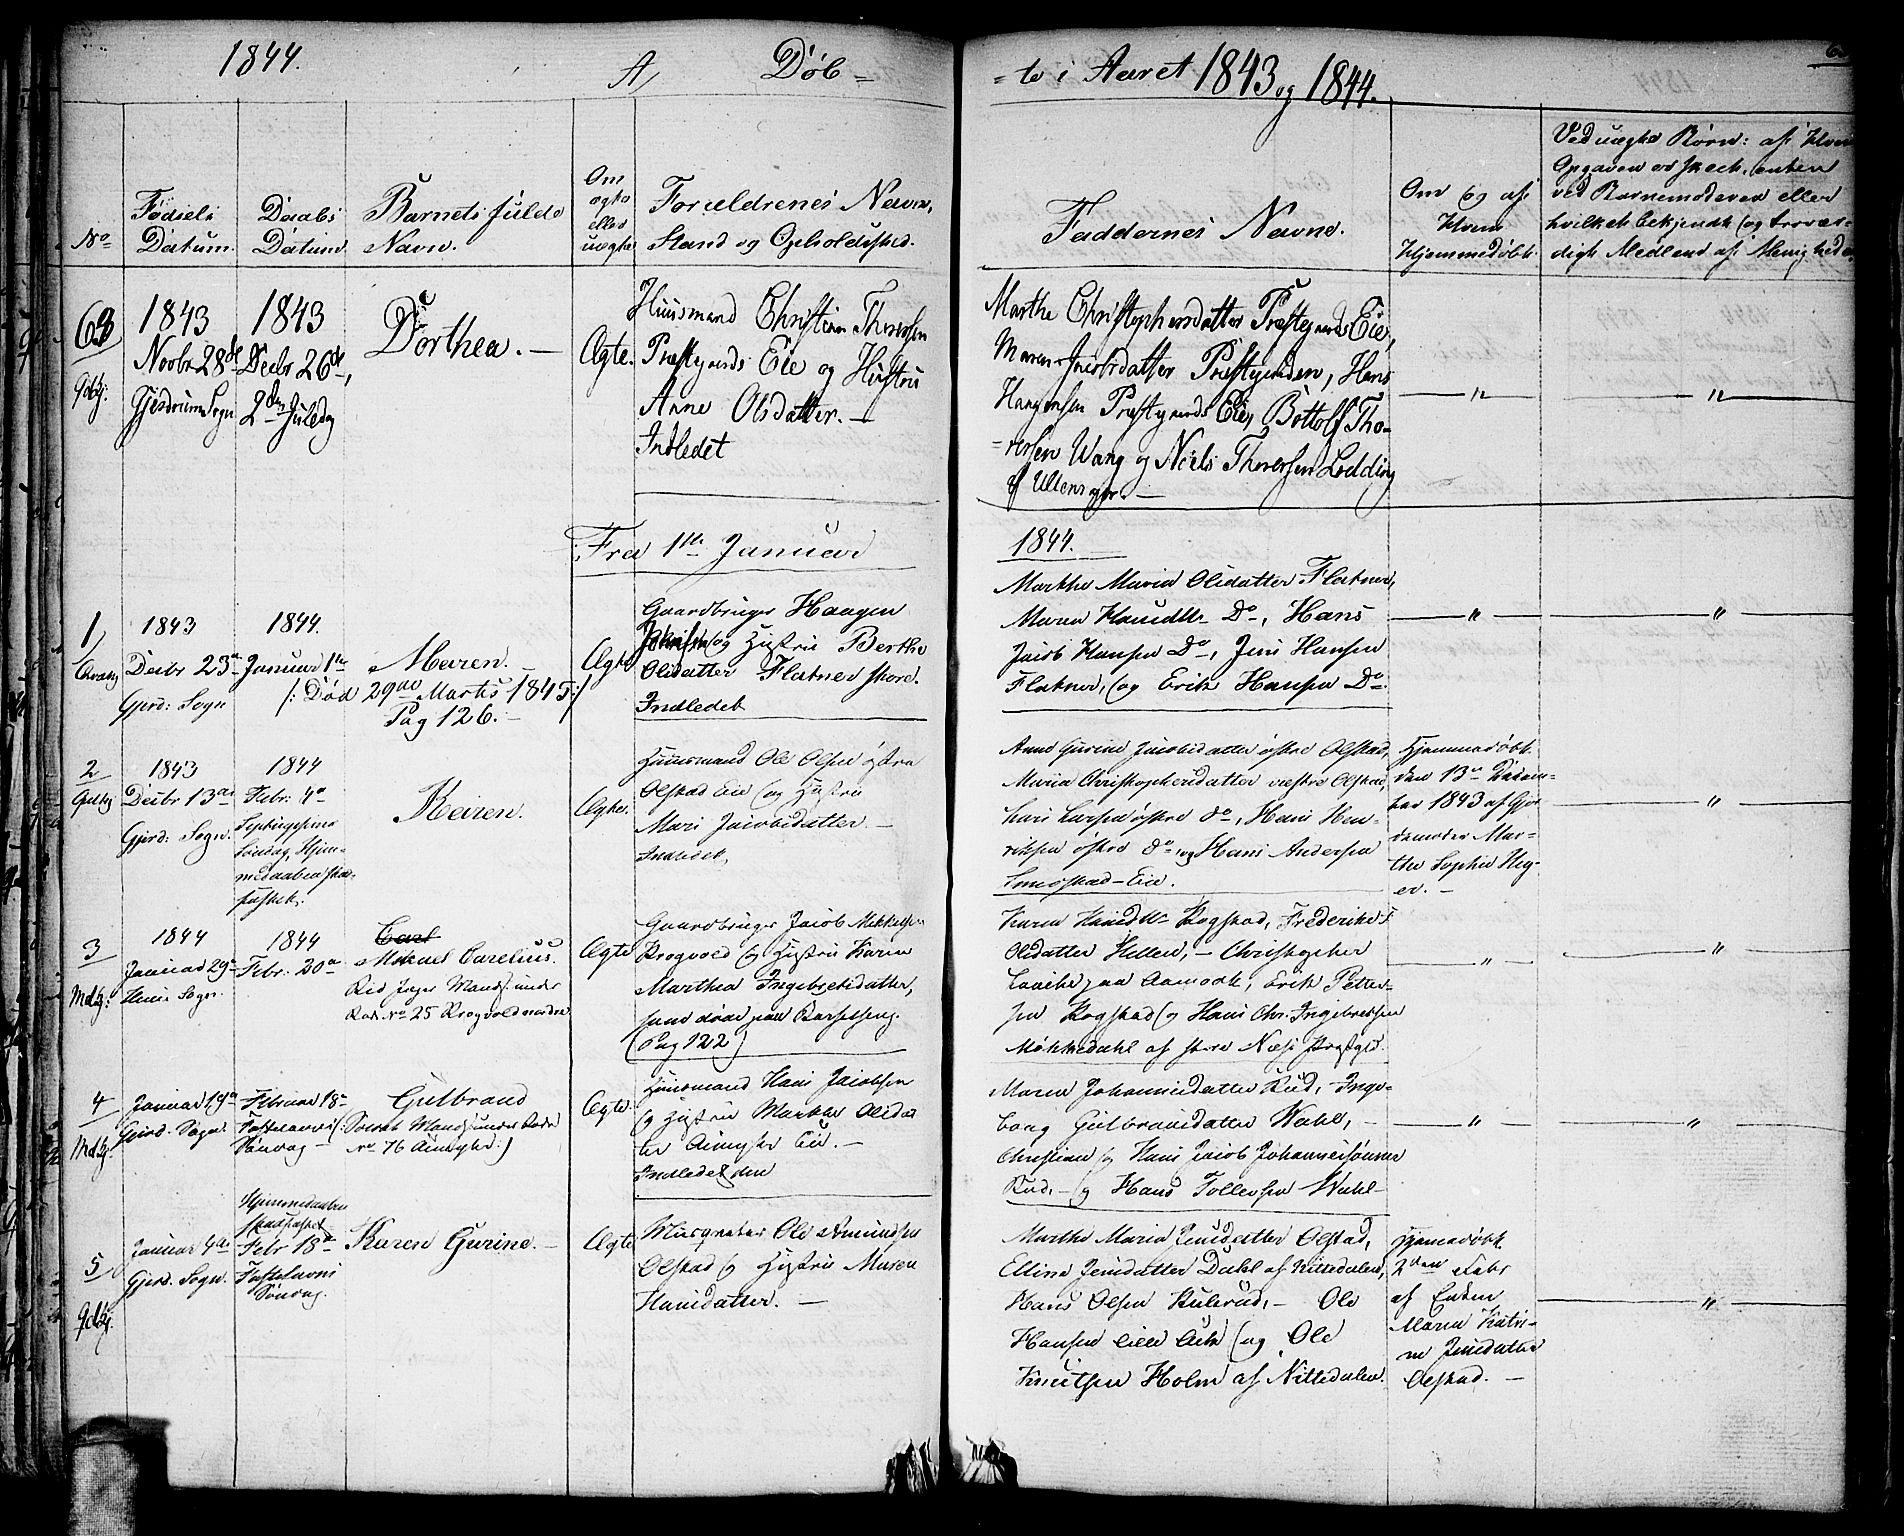 1844. A, Døb= =te i Aaret 1843 og 1844.
No
Fødsels
Datum.
Daabs
Datum.
Barnets fulde
Navn.
Om
ægte
eller
uægte.
Forældrenes Navn,
Stand og Opholdssted.
Faddernes Navne.
Om og af
Hvem
Hjemmedøbt.
Ved uægte Børn: af Hvem
Opgaven er skeet, enten
ved Barnemoderen eller
hvilket bekjendt og trovær-
digt Medlem af Menigheden
63
Gdbg:
1843
Novbr 28de
Gjerdrum Sogn
1843
Decbr 26de,
2den Juledag
Dorthea. —
Ægte.
Huusmand Christian Thoresen
Præstegaards Eie og Hustru
Anne Olsdatter. —
Indledet
Marthe Christophersdatter Præstegaards Eie,
Maren Jacobsdatter Præstgaarden, Hans
Haagensen Præstegaards Eie, Bottolf Tho-
=resen Wang og Niels Thoresen Lødding
af Ullensager. —
— " —
— " —
Fra 1te Januar 1844.
1
1843
Decbr 23de
Gjerd: Sogn
1844.
Januar 1te
Maren. —
/: Død 29de Marts 1845 :/
Pag 126. —
Ægte
Gaardbruger Haagen
Jensen og Hustru Berthe
Olsdatter Flatner store.
Indledet
Marthe Maria Olsdatter Flatner,
Maren Hansdtr Do, Hans
Jacob Hansen Do, Jens Hansen
Flatner, og Erik Hansen Do.
— " —
— " —
2
1843
Decbr 13de
Gjerd: Sogn.
1844
Febr: 4de
Septuagesima
Søndag, Hjem-
medaaben stad-
fæstet.
Karen.
Ægte.
Huusmand Ole Olsen østre
Olstad Eie og Hustru
Mari Jacobsdatter. —
Indledet,
Anne Gurine Jacobsdatter østre Olstad,
Maria Christophersdatter vestre Olstad,
Lars Larsen østre do, Hans Hen-
riksen østre do og Hans Andersen
Eie.
Hjemmedøbt
den 13de Decem-
ber 1843 af Gjor-
demoder Mar-
the Sophie Hey-
er. —
— " —
3
Mdbg:
1844
Januar 29de
Sogn.
1844
Febr. 20de
Carl
Mikael Carelius.
Rid Jæger Mand: under
Rode No 25 Krogvold nordre
Ægte
Gaardbruger Jacob Mikkelsen
Krogvold og Hustru Karen
Marthea Ingebretsdatter,
som døde paa Barselseng.
(Pag 122)
Karen Hansdtr Kogstad, Frederikke
Olsdatter Hellen, — Christopher
paa Aamodt, Erik Petter-
sen Kogstad og Hans Chr. Ingebretsen
Møkkedahl af store Næss Præstgd.
— " —
— " —
4
Mdbg:
Januar 19de
Gjerd: Sogn.
Februar 18de
Fastelavns
Søndag —
Gulbrand
(Soldat Mand: under Rode
No 76 :)
Ægte.
Huusmand Hans Jacobsen
og Hustru Marthe Olsdat-
ter Eie. —
Indledet den
Maren Johannesdatter Rud, Inge-
borg Gulbransdatter Wahl, —
Christian og Hans Jacob Johannessønner
Rud, — og Hans Tollefsen Wahl —
— " —
— " —
5
Gdbg.
Januar 4de
Gjerd. Sogn.
Hjemmedaaben
stadfæstet
Febr 18de
Fastelavns
Søndag.
Karen Gurine. —
Ægte
Ole Amundsen
Olstad og Hustru Maren
Hansdatter. —
Marthe Maria Jensdatter Olstad,
Elline Jensdatter Dahl af Nittedalen,
Hans Olsen Kulerud, — Ole
Hansen lille Ask og Ole
Knutsen Holm af Nittedalen.
Hjemmedøbt
2den Febr
af Enken
Maren Katri-
ne Jensdatter
Olstad. —
— " —